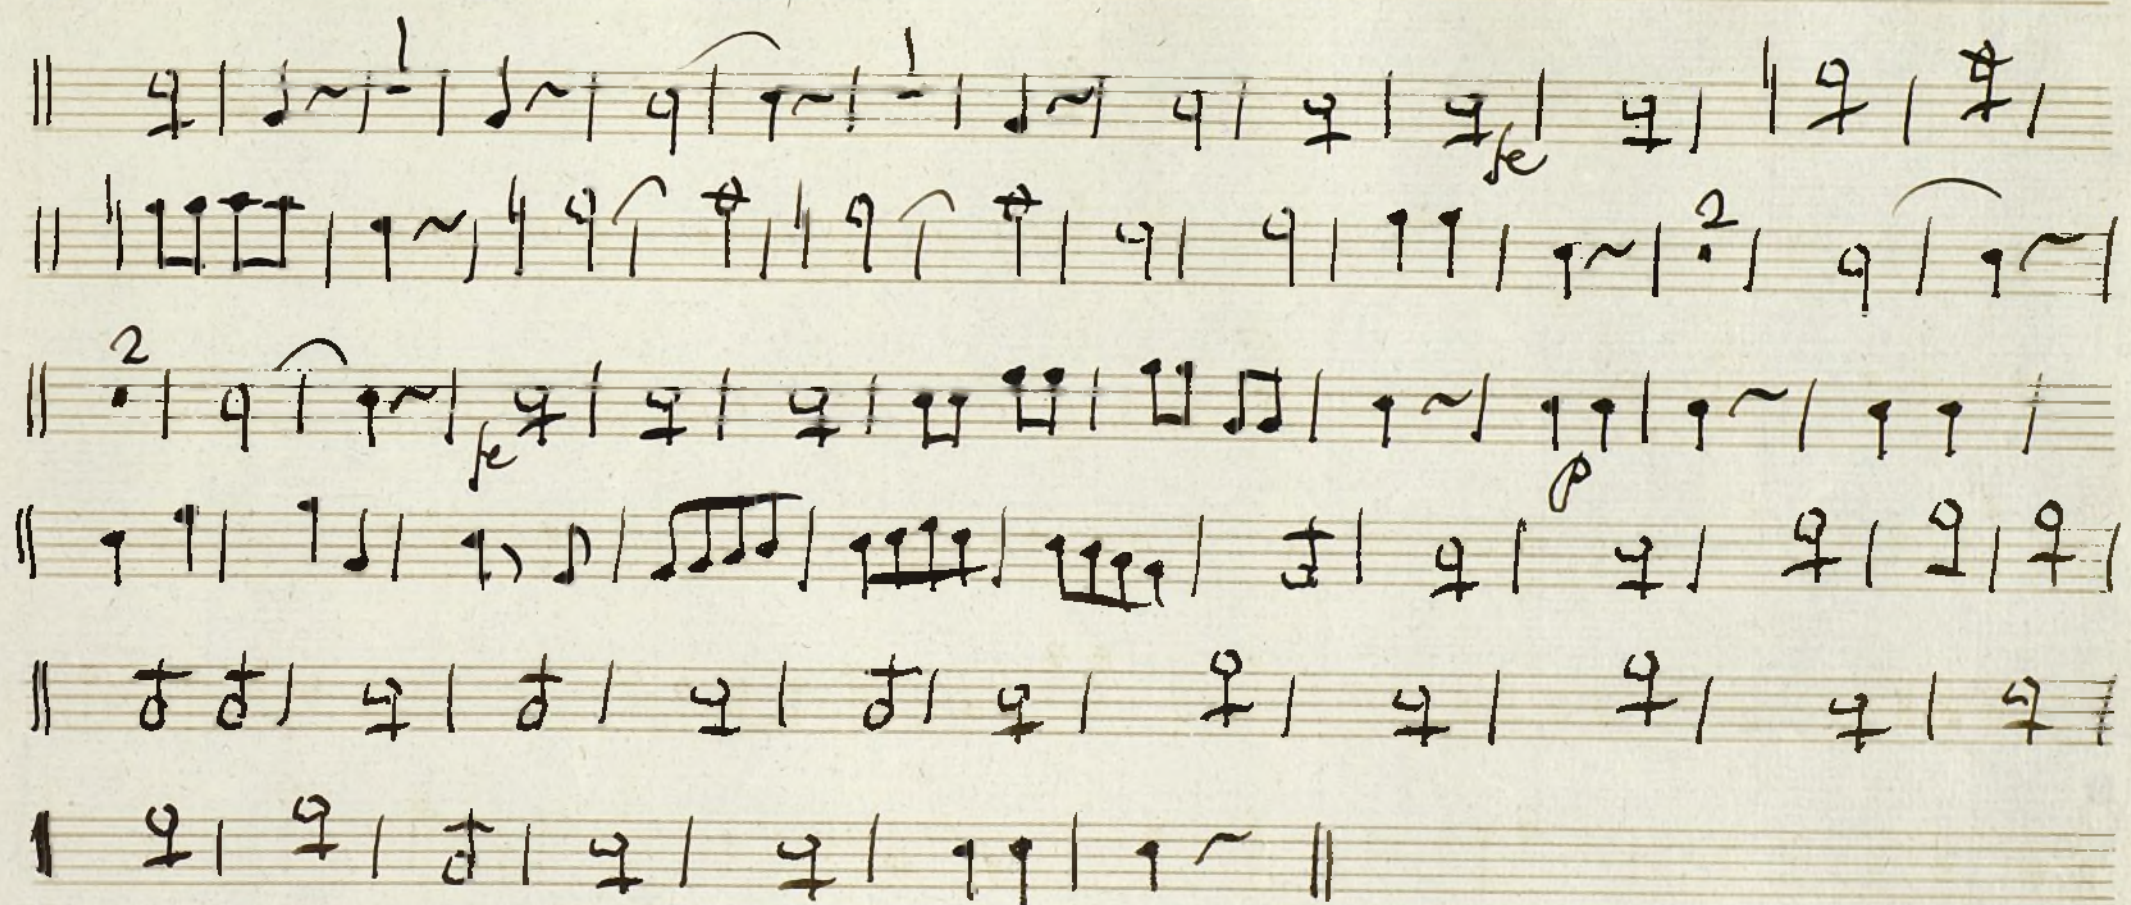 1 1
fe
2
2
fe p